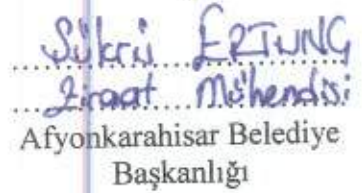 Şükrü ERTUNG
Ziraat Mühendisi
Afyonkarahisar Belediye
Başkanlığı